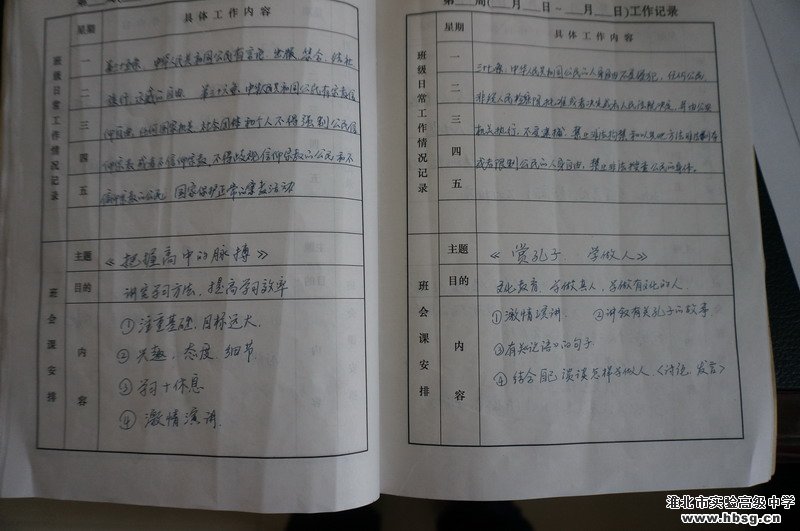 第 周( 月
具体工作内容
星期
班级日常工作情况记录
一
第三十五条 中华人民共和国公民有言论、出版、集会、结社
二
游行、示威的自由 第三十六条 中华人民共和国公民有宗教信
三
仰自由 任何国家机关、社会团体和个人不得强制公民信
四
仰宗教或者不信仰宗教,不得歧视信仰宗教的公民和不
五
信仰宗教的公民 国家保护正常的宗教活动
班会课安排
主题
《把握高中的脉搏》
目的
讲究学习方法,提高学习效率
内容
①注重基础,目标远大.
②兴趣,态度,细节
③学习+休息
④激情演讲.
第 周( 月 日~ 月 日)工作记录
星期
具体工作内容
班级日常工作情况记录
一
三十七条 中华人民共和国公民的人身自由不受侵犯,任何公民,
二
非经人民检察院批准或者决定或者人民法院决定,并由公安
三
机关执行,不受逮捕 禁止非法拘禁和以其他方法非法剥夺
四
或者限制公民的人身自由,禁止非法搜查公民的身体.
五
班会课安排
主题
《赏孔子 学做人》
目的
文化教育,学做真人,学做有文化的人
内容
①激情演讲. ②讲叙有关孔子的故事
③有关论语的句子
④结合自己谈谈怎样学做人《讨论,发言》
淮北市实验高级中学
www.hbsg.cn